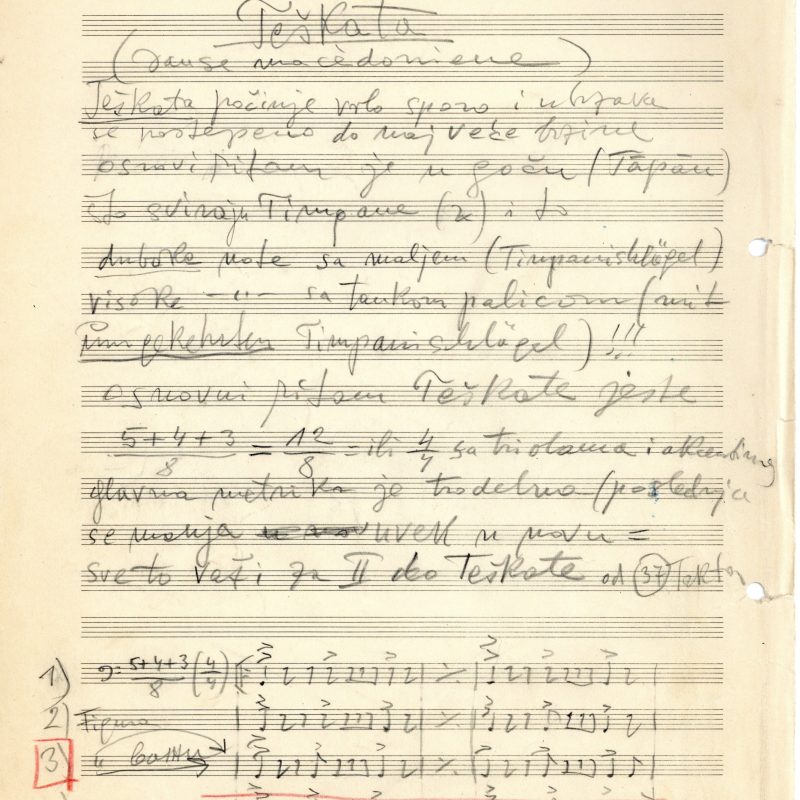 Teškata
(Danse macédoniene)
Teškata počinje vrlo sporo i ubrzava
se postepeno do najveće brzine
osnovni ritam je u goču (Tāpān)
što sviraju Timpane (2) i to
duboke note sa maljem (Timpanischlögel)
visoke —"— sa tankom palicom (mit
umgekehrten Timpanischlögel)!!!
osnovni ritam Teškate jeste
5+4+3/8 = 12/8 = ili 4/4 sa triolama i akcentima
glavna metrika je trodelna (poslednja
se menja uvek u novu =
sve to važi za II deo Teškate od 37 Takta
1) 5+4+3/8 (4/4)
2) Figura
3) "